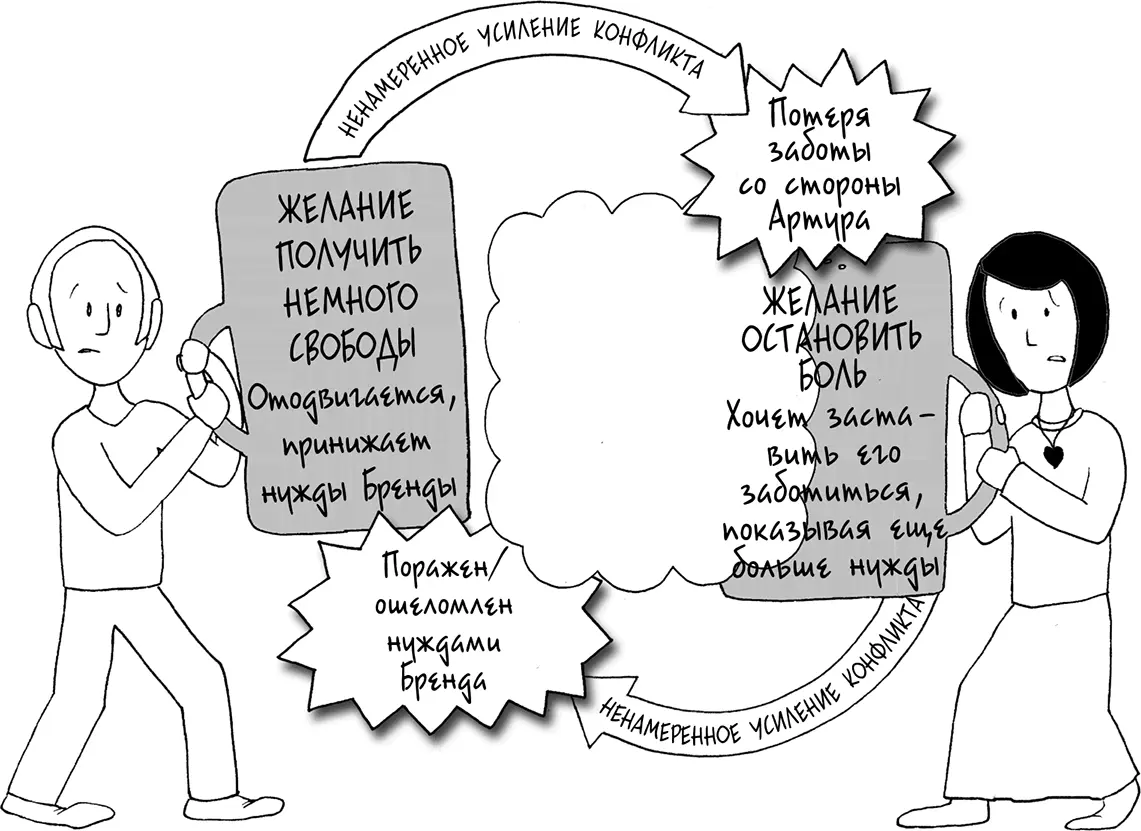 НЕНАМЕРЕННОЕ УСИЛЕНИЕ КОНФЛИКТА
Потеря
заботы
со стороны
Артура
ЖЕЛАНИЕ
ПОЛУЧИТЬ
НЕМНОГО
СВОБОДЫ
Отодвигается,
принижает
нужды Бренды
ЖЕЛАНИЕ
ОСТАНОВИТЬ
БОЛЬ
Хочет заста-
вить его
заботиться,
показывая еще
больше нужды
Поражен/
ошеломлен
нуждами
Бренда
НЕНАМЕРЕННОЕ УСИЛЕНИЕ КОНФЛИКТА